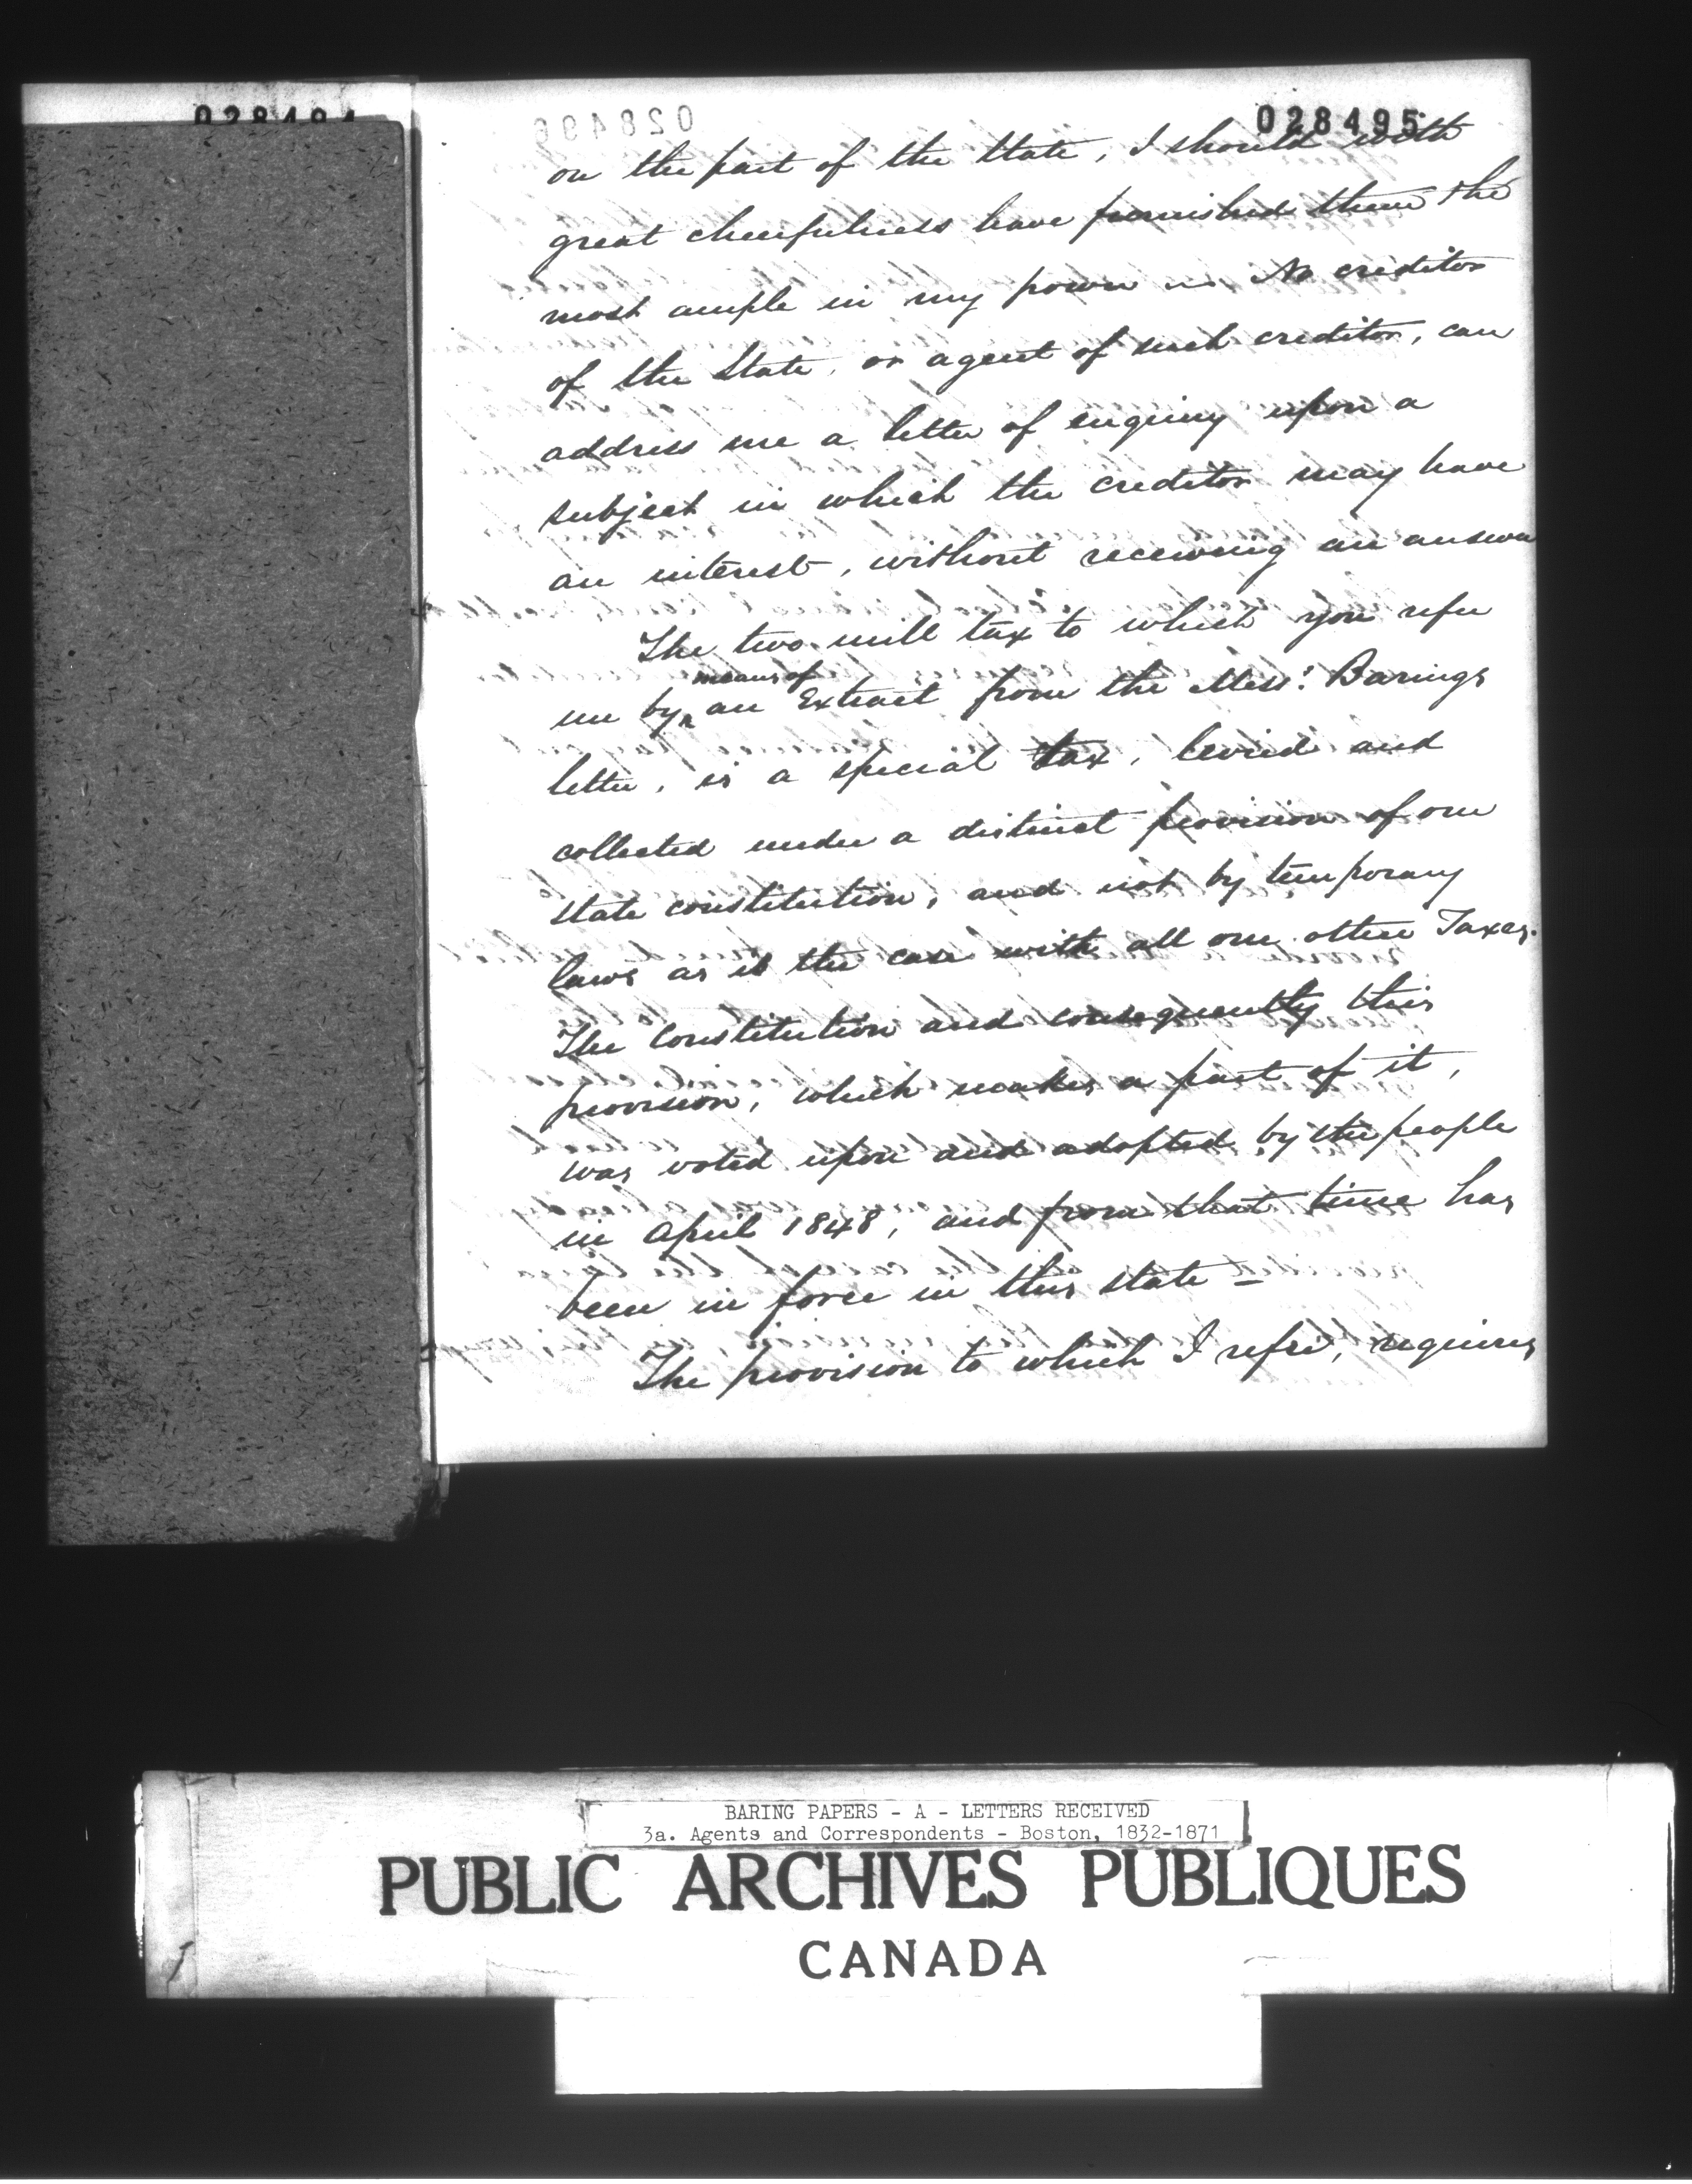 028494
028495
on the part of the State, I should with
great cheerfulness have furnished them the
most ample in my power. No creditor
of the State, or agent of such creditor, can
address me a letter of enquiry upon a
subject in which the creditor may have
an interest, without receiving an answer
The two mill tax to which you refer
me by means of an Extract from the Mess: Barings
letter, is a special tax, levied and
collected under a distinct provision of our
state constitution, and not by temporary
laws as is the case with all our other Taxes.
The Constitution and consequently this
provision, which makes a part of it,
was voted upon and adopted by the people
in April 1848, and from that time has
been in force in this state –
The provision to which I refer, requires
BARING PAPERS - A - LETTERS RECEIVED
3a. Agents and Correspondents - Boston, 1832-1871
PUBLIC ARCHIVES PUBLIQUES
CANADA